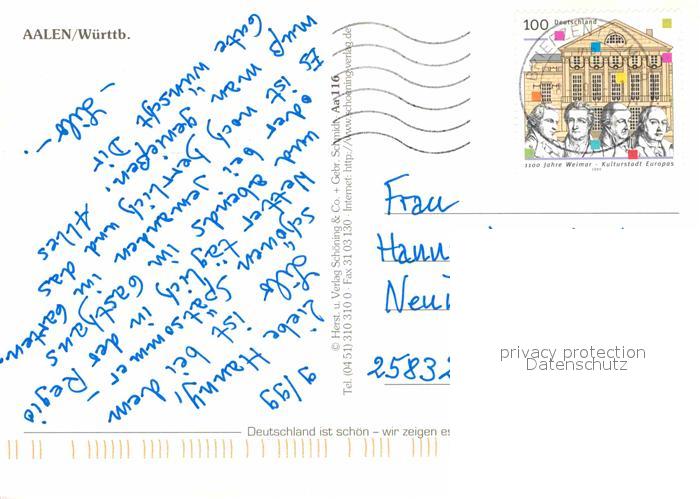 AALEN/Württb.
9/99
Liebe Hanny,
Lilo ist bei dem
schönen Spätsommer
Wetter täglich in der Regio
und abends im Gasthaus
oder bei jemanden in
ist noch herrlich und das
muß man genießen. Alles
Gute wünscht Dir
- Lilo -
© Herst. u. Verlag Schöning & Co. + Gebr. Schmidt, Aa 116
Tel. (04 51) 310 310 0 Fax 31 03 130 · Internet: http://www.schoeningverlag.de
100 Deutschland
1100 Jahre Weimar - Kulturstadt Europas
1999
Frau
Hann
Neu
2583
privacy protection
Datenschutz
Deutschland ist schön – wir zeigen es